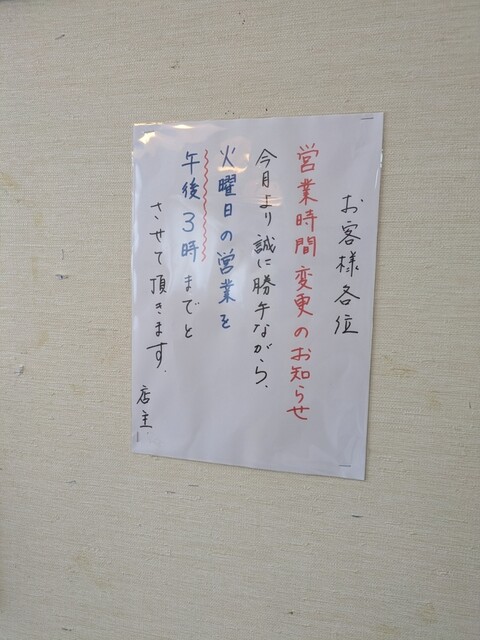 お客様各位
営業時間変更のお知らせ
今月より誠に勝手ながら、
火曜日の営業を
午後3時までと
させて頂きます。
店主